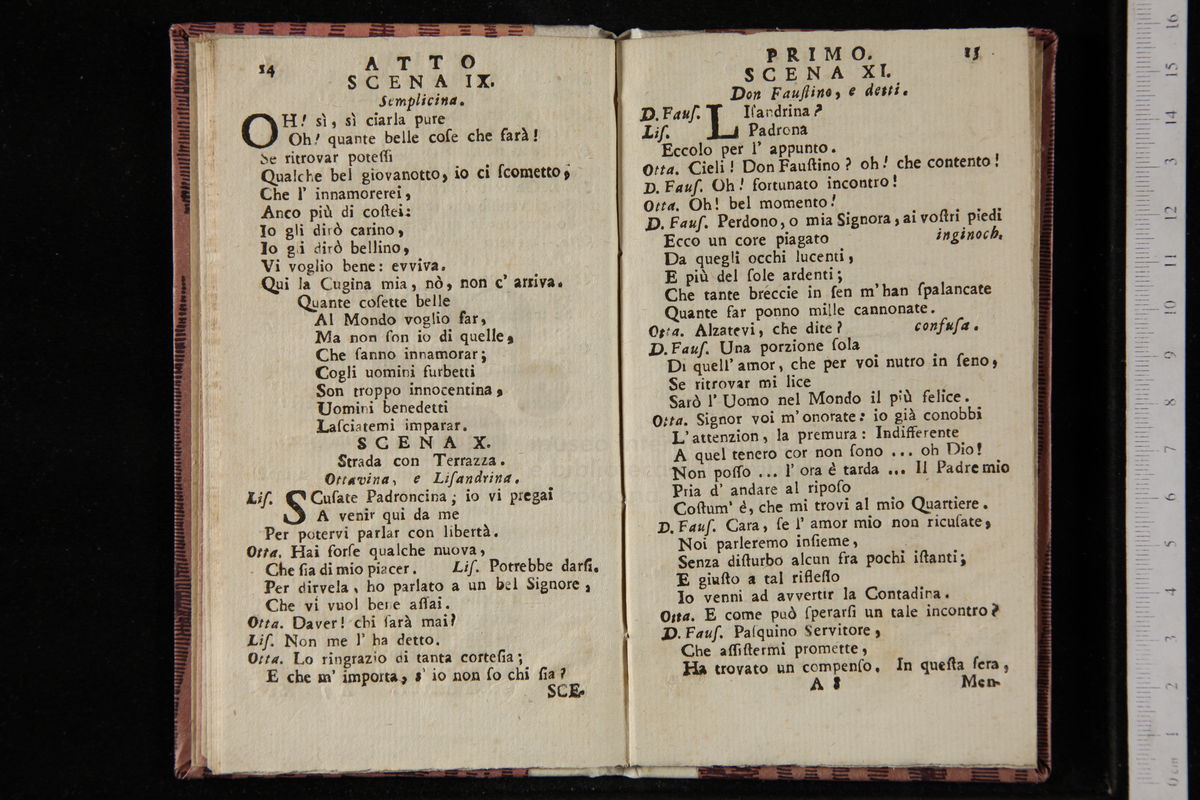 14
ATTO
SCENA IX.
Semplicina.
OH! sì, sì ciarla pure
Oh! quante belle coſe che ſarà!
Se ritrovar poteſſi
Qualche bel giovanotto, io ci ſcometto,
Che l' innamorerei,
Anco più di coſtei:
Io gli dirò carino,
Io gli dirò bellino,
Vi voglio bene: evviva.
Qui la Cugina mia, nò, non c' arriva.
Quante coſette belle
Al Mondo voglio far,
Ma non ſon io di quelle,
Che ſanno innamorar;
Cogli uomini furbetti
Son troppo innocentina,
Uomini benedetti
Laſciatemi imparar.
SCENA X.
Strada con Terrazza.
Ottavina, e Liſandrina.
Liſ. SCuſate Padroncina; io vi pregai
A venir qui da me
Per potervi parlar con libertà.
Otta. Hai forſe qualche nuova,
Che ſia di mio piacer. Liſ. Potrebbe darſi.
Per dirvela, ho parlato a un bel Signore,
Che vi vuol bene aſſai.
Otta. Daver! chi ſarà mai?
Liſ. Non me l' ha detto.
Otta. Lo ringrazio di tanta corteſia;
E che m' importa, s' io non ſo chi ſia?
SCE-
PRIMO.
15
SCENA XI.
Don Fauſtino, e detti.
D. Fauſ. LIſandrina?
Liſ. Padrona
Eccolo per l' appunto.
Otta. Cieli! Don Fauſtino? oh! che contento!
D. Fauſ. Oh! fortunato incontro!
Otta. Oh! bel momento!
D. Fauſ. Perdono, o mia Signora, ai voſtri piedi
Ecco un core piagato inginoch.
Da quegli occhi lucenti,
E più del ſole ardenti;
Che tante breccie in ſen m'han ſpalancate
Quante far ponno mille cannonate.
Otta. Alzatevi, che dite? confuſa.
D. Fauſ. Una porzione ſola
Di quell' amor, che per voi nutro in ſeno,
Se ritrovar mi lice
Sarò l' Uomo nel Mondo il più felice.
Otta. Signor voi m' onorate: io già conobbi
L' attenzion, la premura: Indifferente
A quel tenero cor non ſono ... oh Dio!
Non poſſo ... l' ora è tarda ... Il Padre mio
Pria d' andare al ripoſo
Coſtum' è, che mi trovi al mio Quartiere.
D. Fauſ. Cara, ſe l' amor mio non ricuſate,
Noi parleremo inſieme,
Senza diſturbo alcun fra pochi iſtanti;
E giuſto a tal rifleſſo
Io venni ad avvertir la Contadina.
Otta. E come può ſperarſi un tale incontro?
D. Fauſ. Paſquino Servitore,
Che aſſiſtermi promette,
Ha trovato un compenſo. In queſta ſera,
A 8 Men-